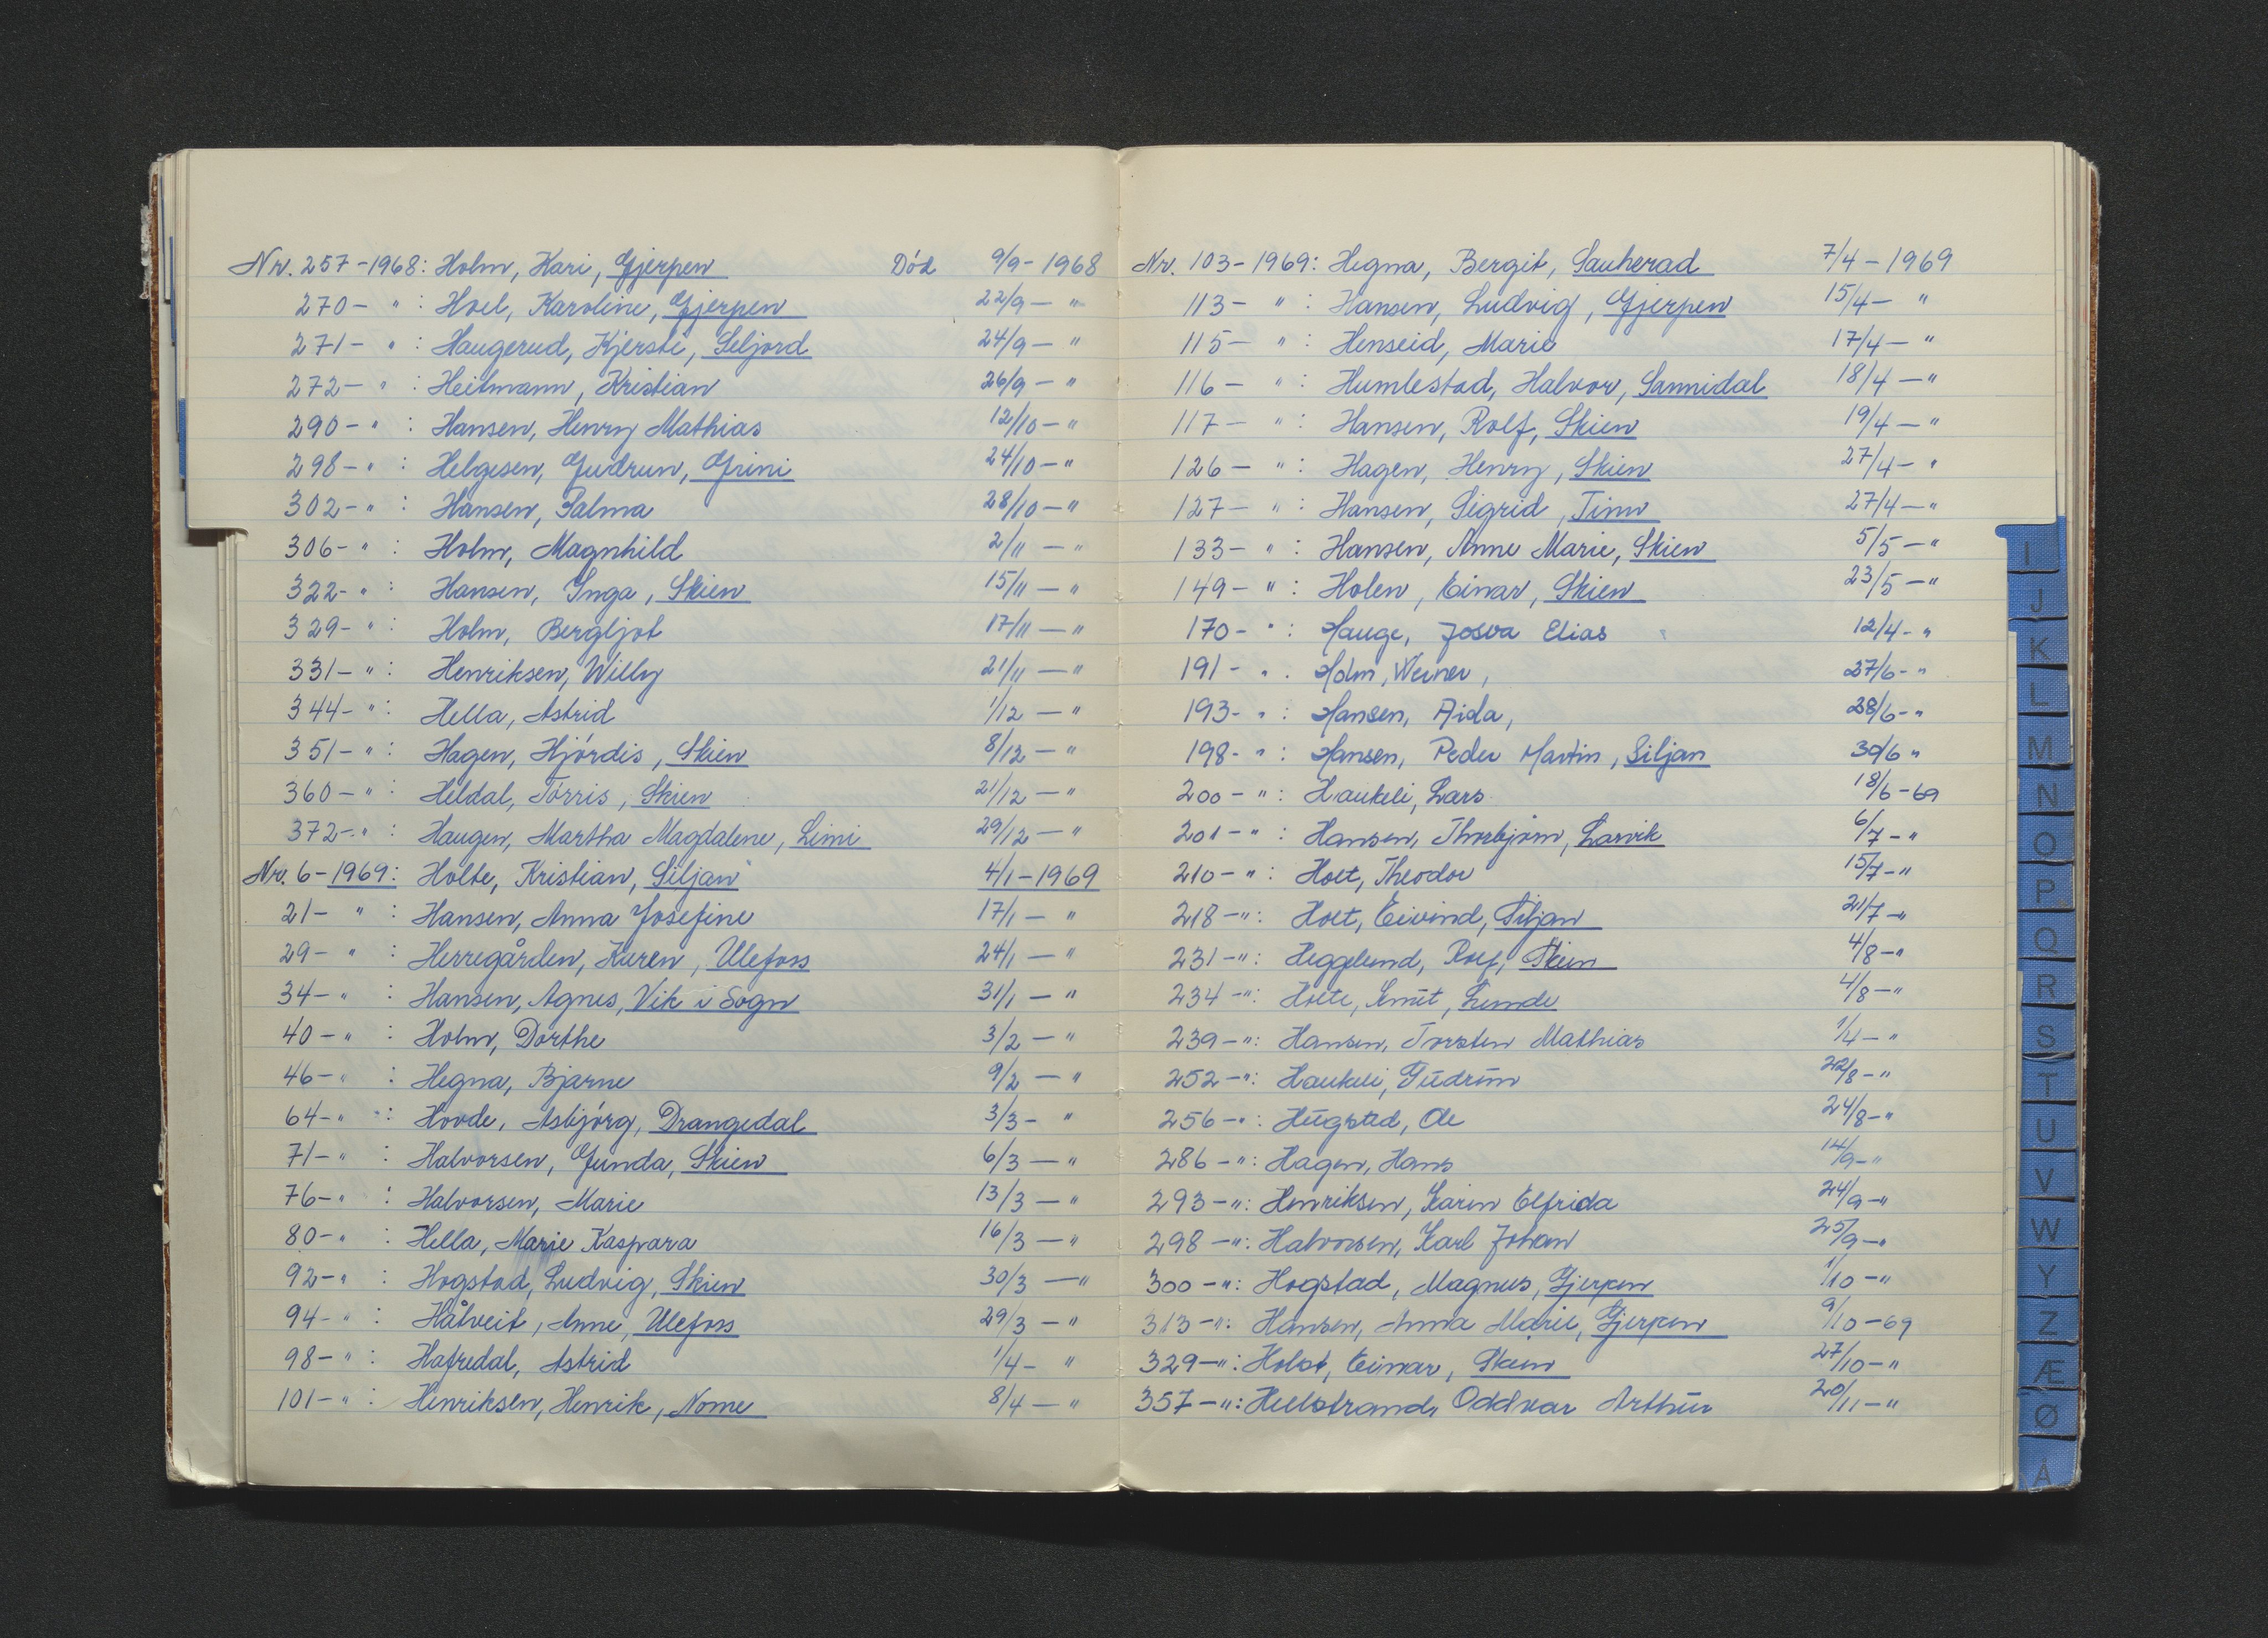 Nr. 257-1968: Holm, Kari, Gjerpen Död 9/9-1968
270- " : Hoel, Karoline, Gjerpen 22/9 - "
271- " : Haugerud, Kjersti, Seljord 24/9 - "
272- " : Heitmann, Kristian 26/9 - "
290- " : Hansen, Henry Mathias 12/10 - "
298- " : Helgesen, Gudrun, Grini 24/10 - "
302- " : Hansen, Salma 28/10 - "
306- " : Holm, Magnhild 2/11 - "
322- " : Hansen, Inga, Skien 15/11 - "
329- " : Holm, Bergljot 17/11 - "
331- " : Henriksen, Willy 21/11 - "
344- " : Hella, Astrid 1/12 - "
351- " : Hagen, Hjördis, Skien 8/12 - "
360- " : Heldal, Törris, Skien 21/12 - "
372- " : Haugen, Martha Magdalene, Limi 29/12 - "
Nr. 6-1969: Holte, Kristian, Siljan 4/1-1969
21- " : Hansen, Anna Josefine 17/1 - "
29- " : Herregården, Karen, Ulefoss 24/1 - "
34- " : Hansen, Agnes, Vik i Sogn 31/1 - "
40- " : Holm, Dorthe 3/2 - "
46- " : Hegna, Bjarne 9/2 - "
64- " : Hovde, Asbjörg, Drangedal 3/3 - "
71- " : Halvorsen, Gunda, Skien 6/3 - "
76- " : Halvorsen, Marie 13/3 - "
80- " : Hella, Marie Kaspara 16/3 - "
92- " : Hogstad, Ludvig, Skien 30/3 - "
94- " : Håtveit, Anne, Ulefoss 29/3 - "
98- " : Hafredal, Astrid 1/4 - "
101- " : Henriksen, Henrik, Nome 8/4 - "
Nr. 103-1969: Hegna, Bergit, Sauherad 7/4-1969
113- " : Hansen, Ludvig, Gjerpen 15/4 - "
115- " : Henseid, Marie 17/4 - "
116- " : Humlestad, Halvor, Sannidal 18/4 - "
117- " : Hansen, Rolf, Skien 19/4 - "
126- " : Hagen, Henry, Skien 27/4 - "
127- " : Hansen, Sigrid, Tinn 27/4 - "
133- " : Hansen, Anne Marie, Skien 5/5 - "
149- " : Holen, Einar, Skien 23/5 - "
170- " : Hauge, Josva Elias 12/4 - "
191- " : Holm, Werner, 27/6 - "
193- " : Hansen, Aida, 28/6 - "
198- " : Hansen, Peder Martin, Siljan 30/6 "
200- " : Haukeli, Lars 18/6-69
201- " : Hansen, Thorbjörn, Larvik 6/7 - "
210- " : Holt, Theodor 15/7 - "
218- " : Holt, Eivind, Siljan 21/7 - "
231- " : Hegglund, Rolf, Skien 4/8 - "
234- " : Holte, Knut, Lunde 4/8 - "
239- " : Hansen, Torsten Mathias 1/4 - "
252- " : Haukeli, Gudrun 22/8 - "
256- " : Hugsted, Ole 24/8 - "
286- " : Hagen, Hans 14/9 - "
293- " : Henriksen, Karin Elfrida 24/9 - "
298- " : Halvorsen, Karl Johan 25/9 - "
300- " : Hogstad, Magnus, Gjerpen 1/10 - "
313- " : Hansen, Anna Marie, Gjerpen 9/10-69
329- " : Holst, Einar, Skien 27/10 - "
357- " : Hellstrand, Oddvar Arthur 20/11 - "
I
J
K
L
M
N
O
P
Q
R
S
T
U
V
W
Y
Z
Æ
Ø
Å